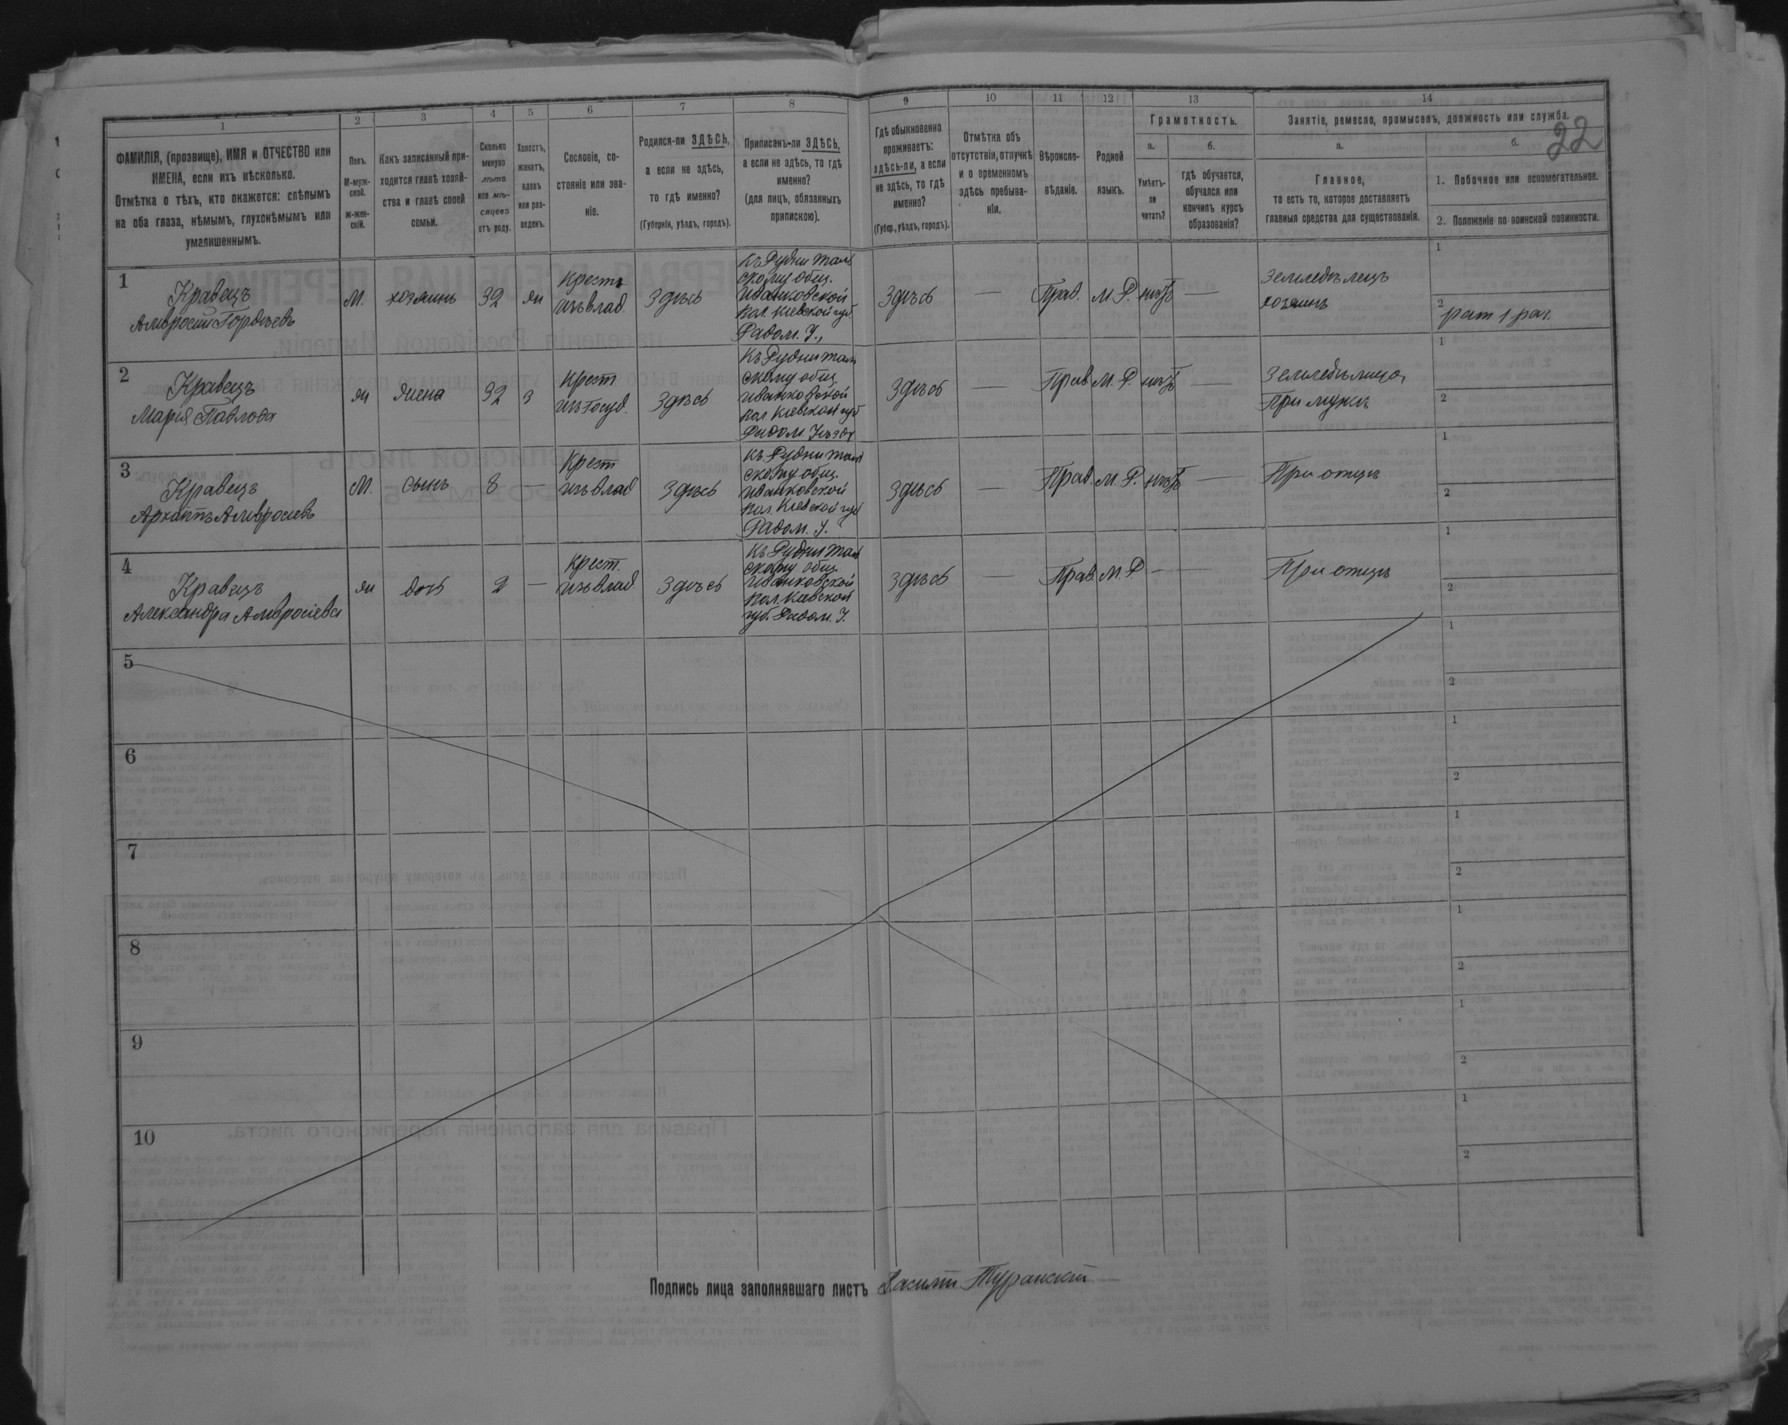 22
1 2 3 4 5 6 7 8 9 10 11 12 13 14
ФАМИЛІЯ, (прозвище), ИМЯ и ОТЧЕСТВО или
ИМЕНА, если ихъ нѣсколько.
Отмѣтка о тѣхъ, кто окажется: слѣпымъ
на оба глаза, нѣмымъ, глухонѣмымъ или
умалишеннымъ.
Полъ.
М-муж-
ской.
ж-жен-
скій.
Какъ записанный при-
ходится главѣ хозяй-
ства и главѣ своей
семьи.
Сколько
минуло
лѣтъ
или мѣ-
сяцевъ
отъ роду.
Холостъ,
женатъ,
вдовъ
или раз-
веденъ.
Сословіе, со-
стояніе или зва-
ніе.
Родился-ли ЗДѢСЬ,
а если не здѣсь,
то гдѣ именно?
(Губернія, уѣздъ, городъ).
Приписанъ-ли ЗДѢСЬ,
а если не здѣсь, то гдѣ
именно?
(для лицъ, обязанныхъ
припискою).
Гдѣ обыкновенно
проживаетъ:
здѣсь-ли, а если
не здѣсь, то гдѣ
именно?
(Губер., уѣздъ, городъ).
Отмѣтка объ
отсутствіи, отлучкѣ
и о временномъ
здѣсь пребыва-
ніи.
Вѣроиспо-
вѣданіе.
Родной
языкъ.
Грамотность.
а.
Умѣетъ-
ли
читать?
б.
гдѣ обучается,
обучался или
кончилъ курсъ
образованія?
Занятіе, ремесло, промыселъ, должность или служба.
а.
Главное,
то есть то, которое доставляетъ
главныя средства для существованія.
б.
1. Побочное или вспомогательное.
2. Положеніе по воинской повинности.
1
Кравецъ
Амвросій Гордѣевъ
М.
хозяинъ
32
жи
Крестъ
изъ влад.
Здѣсь
Къ Рудни Таль
скому общ.
Иванковской
вол. Кіевской губ
Радом. У.,
Здѣсь
—
Прав.
М. Р.
нѣтъ
—
земледѣлецъ
хозяинъ
1
2
рат 1 раз.
2
Кравецъ
Марія Павлова
жи
жена
32
з
Крест
изъ Госуд.
Здѣсь
Къ Рудни Таль
скому общ.
Иванковской
вол. Кіевской губ
Радом Уѣзда
Здѣсь
—
Прав
М. Р.
нѣтъ
—
Земледѣлица,
При мужѣ
1
2
3
Кравецъ
Архипъ Амвросіевъ
М.
сынъ
8
—
Крест
изъ влад
Здѣсь
Къ Рудни Таль
скому общ.
Иванковской
вол. Кіевской губ
Радом. У.
Здѣсь
—
Прав.
М. Р.
нѣтъ
—
При отцѣ
1
2
4
Кравецъ
Александра Амвросіева
жи
дочь
2
—
Крест.
изъ влад
Здѣсь
Къ Рудни Таль
скому общ.
Иванковской
вол. Кіевской
губ. Радом. У.
Здѣсь
—
Прав.
М. Р
—
—
При отцѣ
1
2
5
1
2
6
1
2
7
1
2
8
1
2
9
1
2
10
1
2
Подпись лица заполнявшаго листъ Василій Туранскій